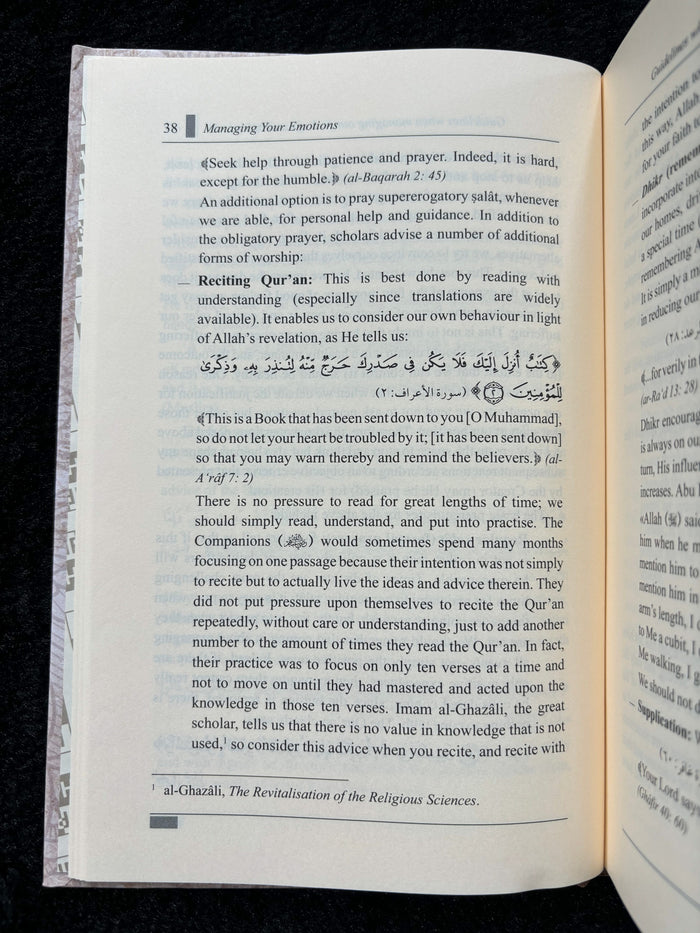 38 Managing Your Emotions
﴾Seek help through patience and prayer. Indeed, it is hard,
except for the humble.﴿ (al-Baqarah 2: 45)
An additional option is to pray supererogatory ṣalât, whenever
we are able, for personal help and guidance. In addition to
the obligatory prayer, scholars advise a number of additional
forms of worship:
— Reciting Qur’an: This is best done by reading with
understanding (especially since translations are widely
available). It enables us to consider our own behaviour in light
of Allah’s revelation, as He tells us:
﴿كِتَٰبٌ أُنزِلَ إِلَيْكَ فَلَا يَكُن فِي صَدْرِكَ حَرَجٌ مِّنْهُ لِتُنذِرَ بِهِۦ وَذِكْرَىٰ
لِلْمُؤْمِنِينَ ٢﴾ (سورة الأعراف: ٢)
﴾This is a Book that has been sent down to you [O Muhammad],
so do not let your heart be troubled by it; [it has been sent down]
so that you may warn thereby and remind the believers.﴿ (al-
A‘râf 7: 2)
There is no pressure to read for great lengths of time; we
should simply read, understand, and put into practise. The
Companions () would sometimes spend many months
focusing on one passage because their intention was not simply
to recite but to actually live the ideas and advice therein. They
did not put pressure upon themselves to recite the Qur’an
repeatedly, without care or understanding, just to add another
number to the amount of times they read the Qur’an. In fact,
their practice was to focus on only ten verses at a time and
not to move on until they had mastered and acted upon the
knowledge in those ten verses. Imam al-Ghazâli, the great
scholar, tells us that there is no value in knowledge that is not
used,¹ so consider this advice when you recite, and recite with
¹ al-Ghazâli, The Revitalisation of the Religious Sciences.
Guidelines
the intention
this way, Allah
for your faith
— Dhikr
incorporate
our homes,
a special time
remembering
It is simply a
in reducing our
﴾...for verily in
(ar-Ra‘d 13: 28)
Dhikr
is always on our
turn, His
increases. Abu
«Allah (ﷻ) said
him when he
mention him to
mention him in
arm’s length, I
to Me a cubit, I
Me walking, I
We should not
— Supplication:
﴾Your Lord
(Ghâfir 40: 60)